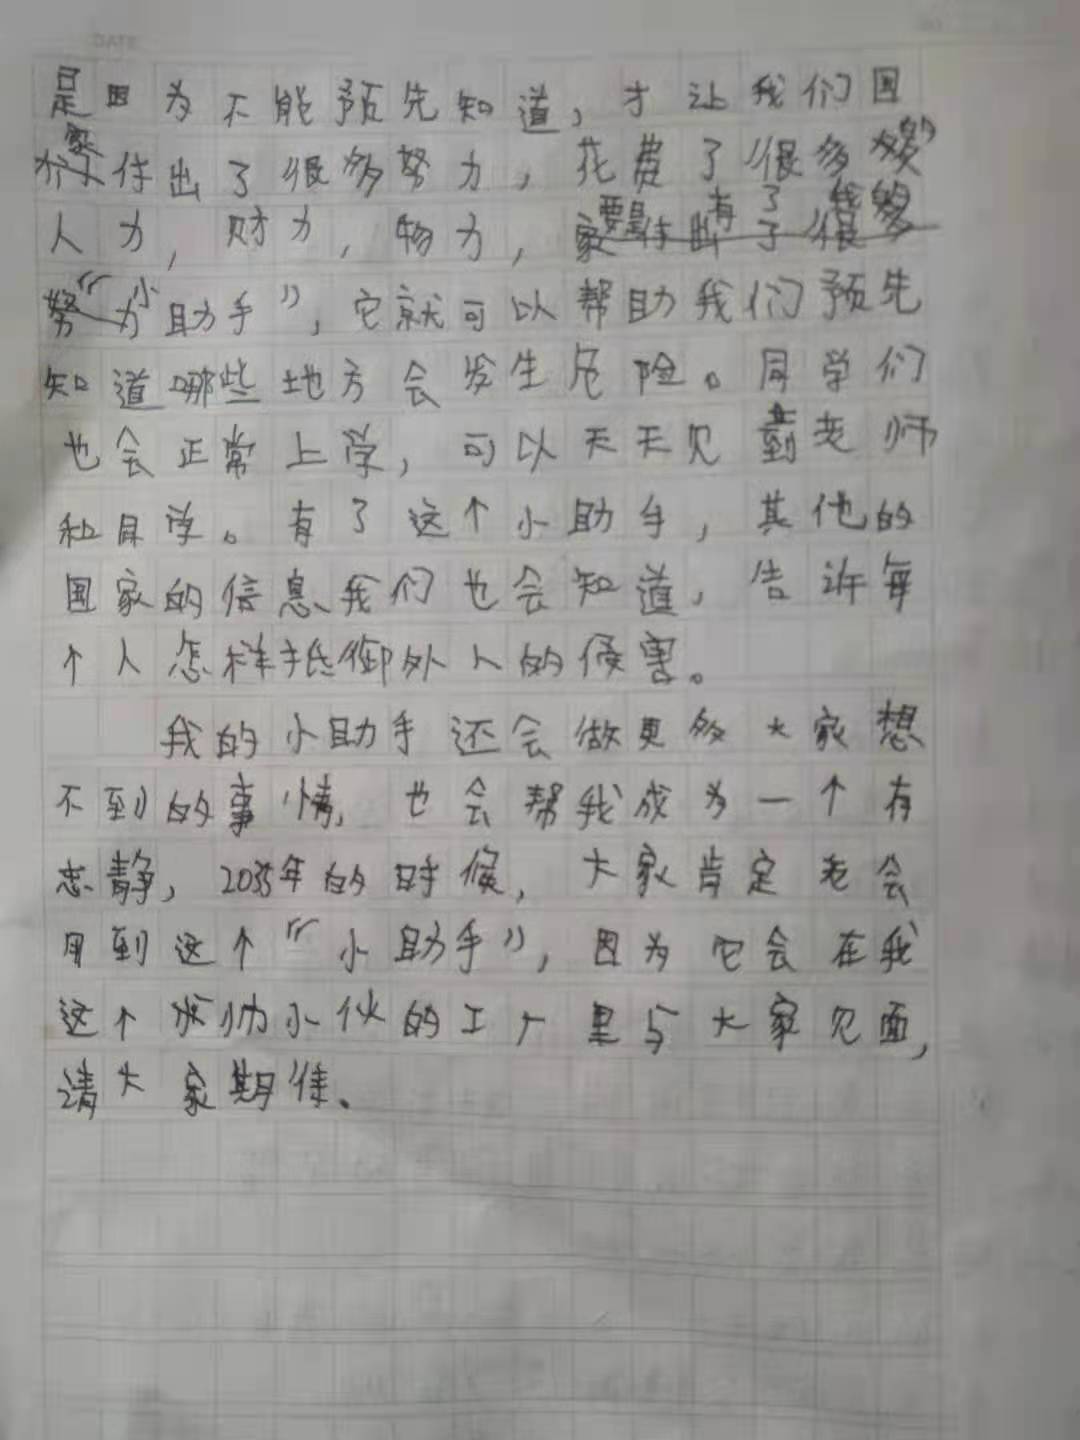 是因为不能预先知道，才让我们国
家付出了很多努力，花费了很多的
人力，财力，物力，要是有了我的
“小助手”，它就可以帮助我们预先
知道哪些地方会发生危险。同学们
也会正常上学，可以天天见到老师
和同学。有了这个小助手，其他的
国家的信息我们也会知道，告诉每
个人怎样抵御外人的侵害。
我的小助手还会做更多大家想
不到的事情，也会帮我成为一个有
志静，2035年的时候，大家肯定老会
用到这个“小助手”，因为它会在我
这个小伙的工厂里与大家见面，
请大家期待。